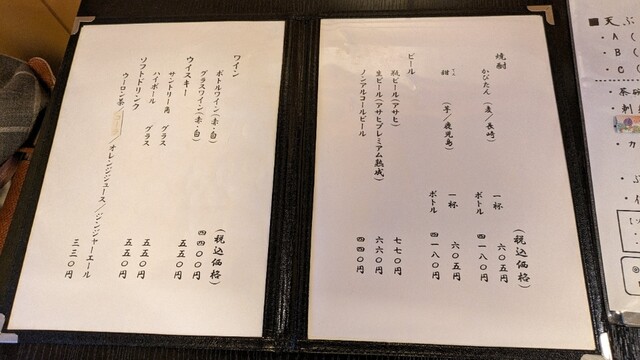 焼酎
（税込価格）
かぴたん（麦／長崎） 一杯 六〇五円
ボトル 四一八〇円
（芋／鹿児島） 一杯 六〇五円
ボトル 四一八〇円
ビール
瓶ビール（アサヒ） 七七〇円
生ビール（アサヒプレミアム熟成） 六六〇円
ノンアルコールビール 四四〇円
ワイン
（税込価格）
ボトルワイン（赤・白） 四四〇〇円
グラスワイン（赤・白） 五五〇円
ウイスキー
サントリー角 グラス 五五〇円
ハイボール グラス 五五〇円
ソフトドリンク
ウーロン茶／オレンジジュース／ジンジャーエール 三三〇円
■天ぷ
・A（
・B（
・C（
・茶碗
・刺
・カ